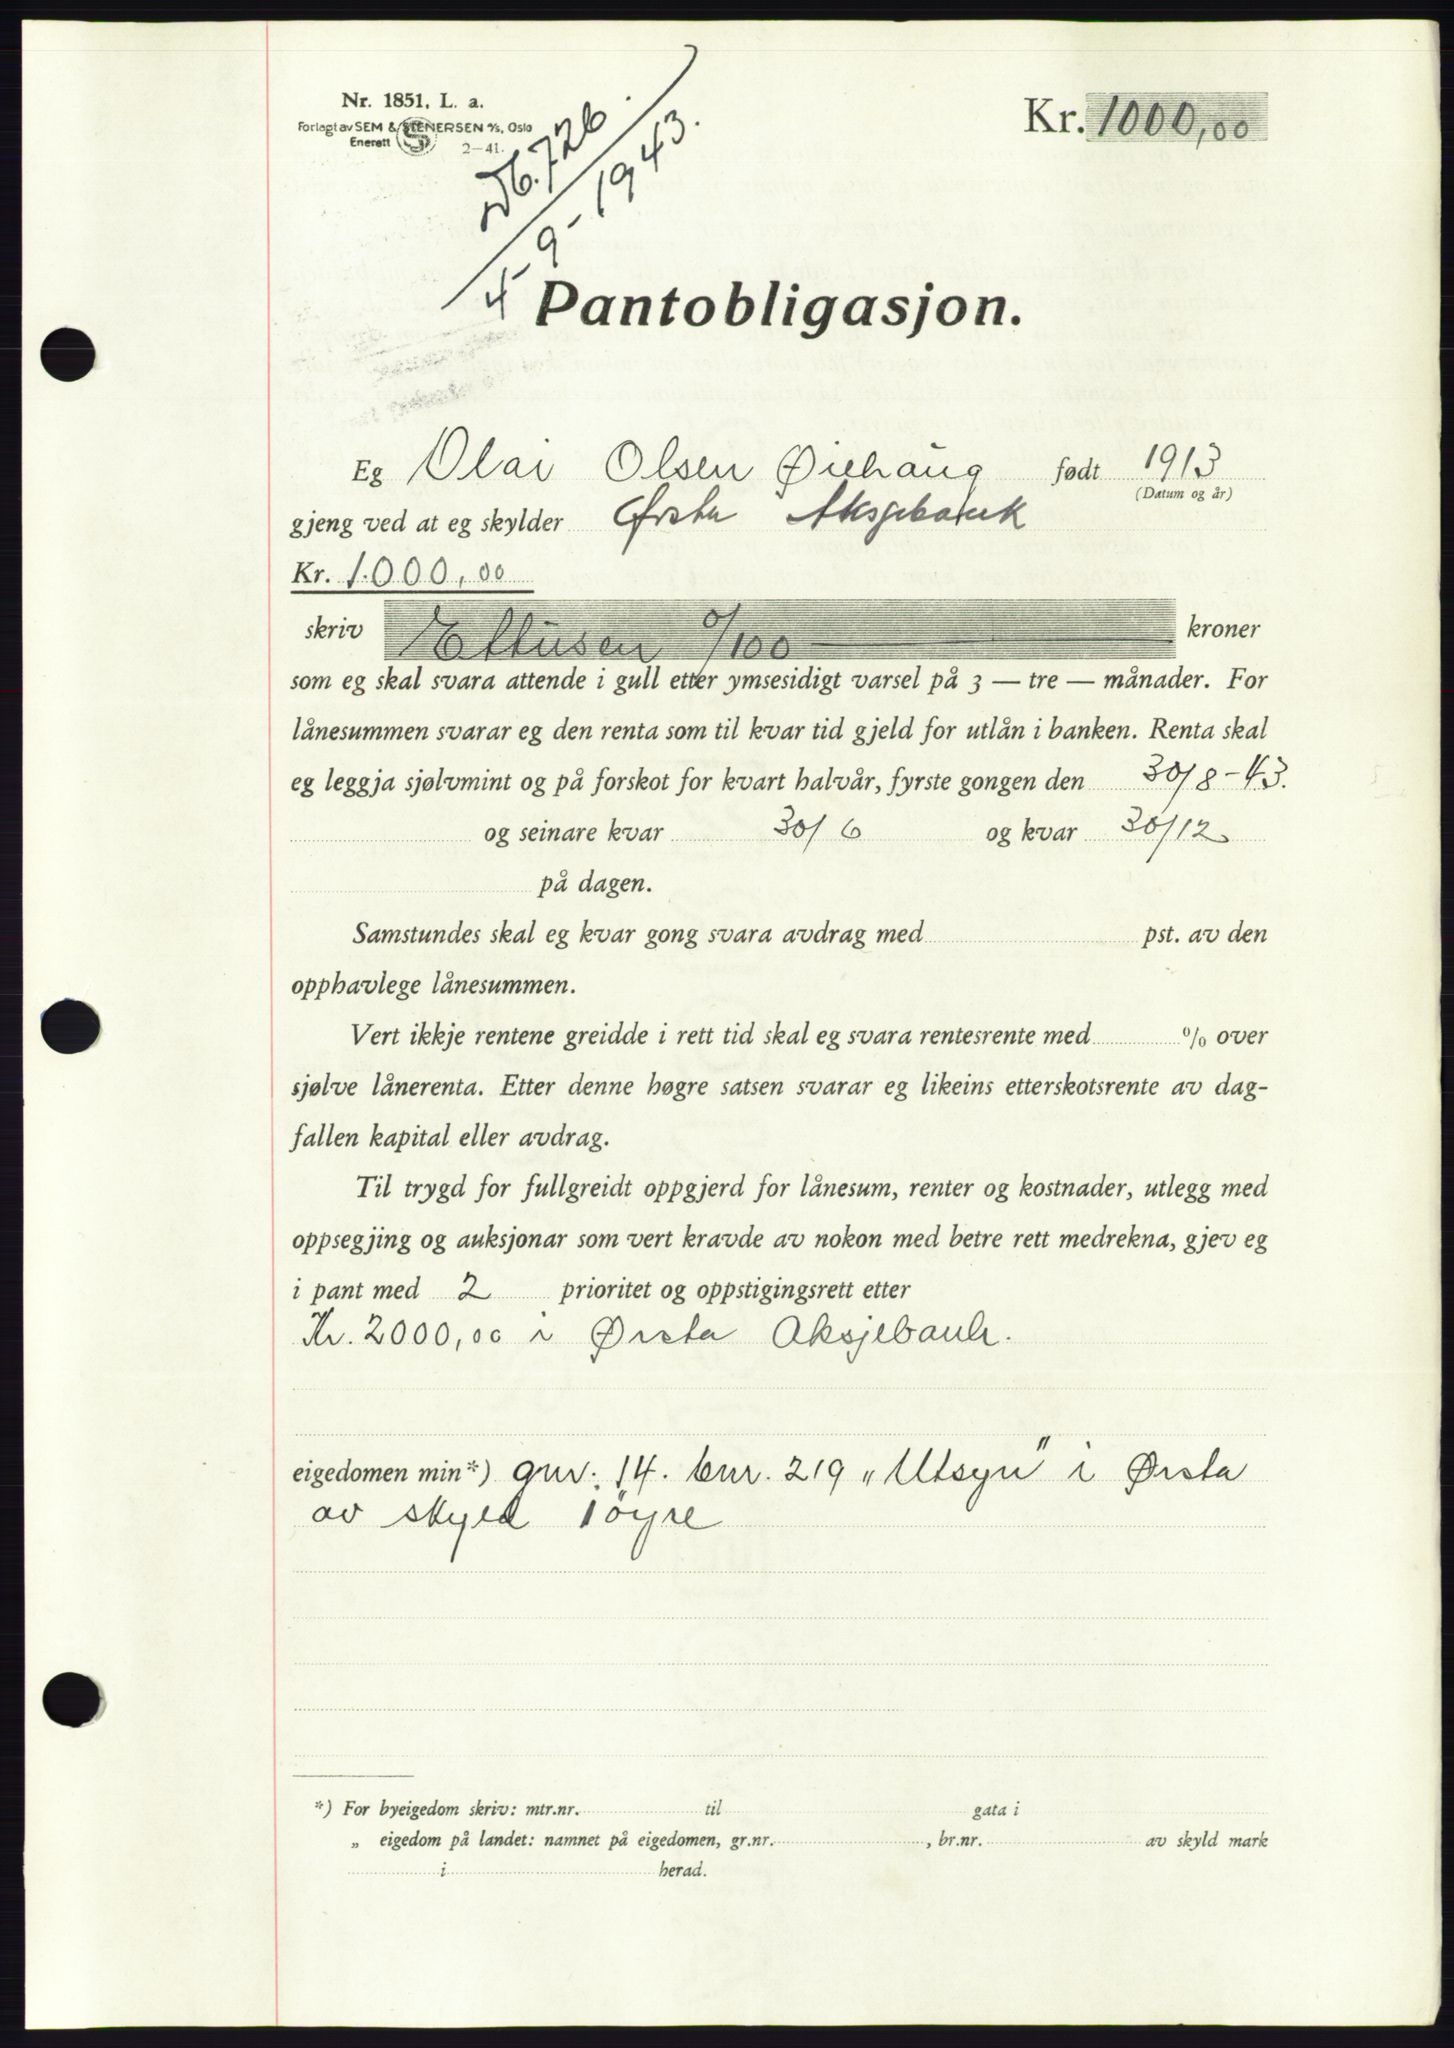 Nr. 1851, L. a.
Forlagt av SEM & STENERSEN A/S, Oslo
Enerett 2—41.
Kr. 1000,00
726
4/9-1943.
Pantobligasjon.
Eg Olai Olsen Øiehaug født 1913
(Datum og år)
gjeng ved at eg skylder Ørsta Aksjebank
Kr. 1.000,00
skriv Ettusen 0/100 kroner
som eg skal svara attende i gull etter ymsesidigt varsel på 3 — tre — månader. For
lånesummen svarar eg den renta som til kvar tid gjeld for utlån i banken. Renta skal
eg leggja sjølvmint og på forskot for kvart halvår, fyrste gongen den 30/8-43.
og seinare kvar 30/6 og kvar 30/12
på dagen.
Samstundes skal eg kvar gong svara avdrag med pst. av den
opphavlege lånesummen.
Vert ikkje rentene greidde i rett tid skal eg svara rentesrente med % over
sjølve lånerenta. Etter denne høgre satsen svarar eg likeins etterskotsrente av dag-
fallen kapital eller avdrag.
Til trygd for fullgreidt oppgjerd for lånesum, renter og kostnader, utlegg med
oppsegjing og auksjonar som vert kravde av nokon med betre rett medrekna, gjev eg
i pant med 2 prioritet og oppstigingsrett etter
Kr. 2000,00 i Ørsta Aksjebank.
eigedomen min*) gnr. 14. bnr. 219 „Utsyn" i Ørsta
av skyld 1 øyre
*) For byeigedom skriv: mtr.nr. til gata i
„ eigedom på landet: namnet på eigedomen, gr.nr. , br.nr. av skyld mark
i herad.